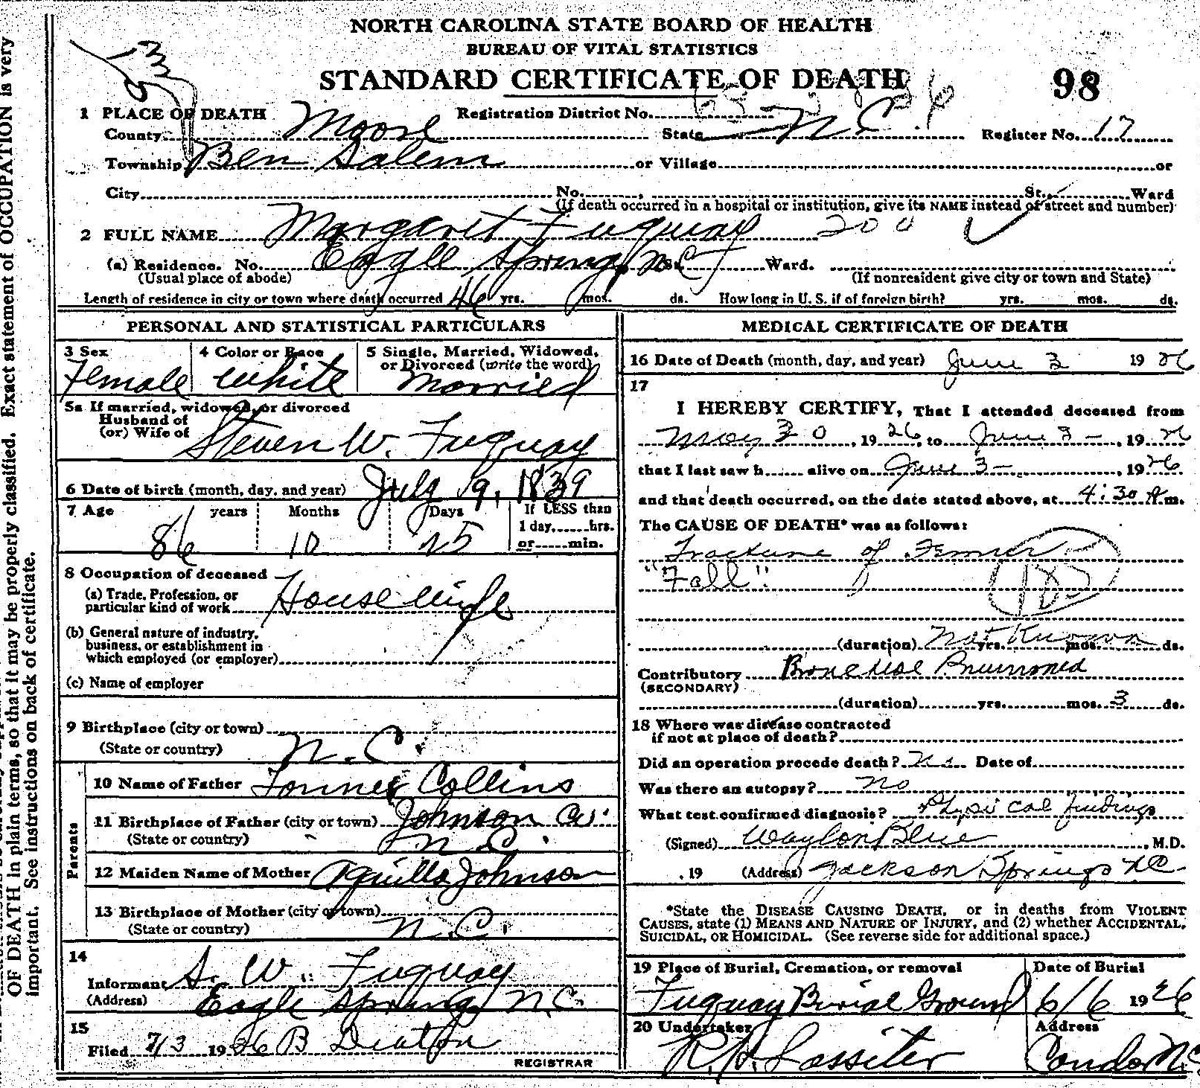 NORTH CAROLINA STATE BOARD OF HEALTH
BUREAU OF VITAL STATISTICS
STANDARD CERTIFICATE OF DEATH
98
1 PLACE OF DEATH
Registration District No.
County Moore State N.C. Register No. 17
Township Ben Salem or Village or
City No. St., Ward
(If death occurred in a hospital or institution, give its NAME instead of street and number)
2 FULL NAME Margaret Fuquay 200
(a) Residence. No. Eagle Springs, N.C. St. Ward.
(Usual place of abode) (If nonresident give city or town and State)
Length of residence in city or town where death occurred 46 yrs. mos. ds. How long in U. S. if of foreign birth? yrs. mos. ds.
PERSONAL AND STATISTICAL PARTICULARS
3 Sex Female
4 Color or Race White
5 Single, Married, Widowed, or Divorced (write the word) Married
5a If married, widowed, or divorced
Husband of
(or) Wife of Steven W. Fuquay
6 Date of birth (month, day, and year) July 9, 1839
7 Age years Months Days If LESS than
1 day, hrs.
or min.
86 10 25
8 Occupation of deceased
(a) Trade, Profession, or
particular kind of work Housewife
(b) General nature of industry,
business, or establishment in
which employed (or employer)
(c) Name of employer
9 Birthplace (city or town)
(State or country) N.C.
Parents
10 Name of Father Collins
11 Birthplace of Father (city or town) Johnson Co.
(State or country) N.C.
12 Maiden Name of Mother Aquilla Johnson
13 Birthplace of Mother (city or town)
(State or country) N.C.
14
Informant S. W. Fuquay
(Address) Eagle Springs N.C.
15
Filed 7/3 1926 B Deaton
REGISTRAR
MEDICAL CERTIFICATE OF DEATH
16 Date of Death (month, day, and year) June 3 1926
17
I HEREBY CERTIFY, That I attended deceased from
May 30, 1926, to June 3-, 1926
that I last saw h alive on June 3- 1926
and that death occurred, on the date stated above, at 4:30 A m.
The CAUSE OF DEATH* was as follows:
Fracture of Femur
"Fall".
(duration) Not Known yrs. mos. ds.
Contributory Bronchial Pneumonia
(SECONDARY)
(duration) yrs. mos. 3 ds.
18 Where was disease contracted
if not at place of death?
Did an operation precede death? No Date of
Was there an autopsy? No
What test confirmed diagnosis? Physical findings
(Signed) Waylon Blue, M.D.
, 19 (Address) Jackson Springs NC
*State the DISEASE CAUSING DEATH, or in deaths from VIOLENT
CAUSES, state (1) MEANS AND NATURE OF INJURY, and (2) whether ACCIDENTAL,
SUICIDAL, OR HOMICIDAL. (See reverse side for additional space.)
19 Place of Burial, Cremation, or removal Date of Burial
Fuquay Burial Ground 6/6 1926
20 Undertaker Address
R. H. Lassiter Candor N.C.
OF DEATH in plain terms, so that it may be properly classified. Exact statement of OCCUPATION is very
important. See instructions on back of certificate.